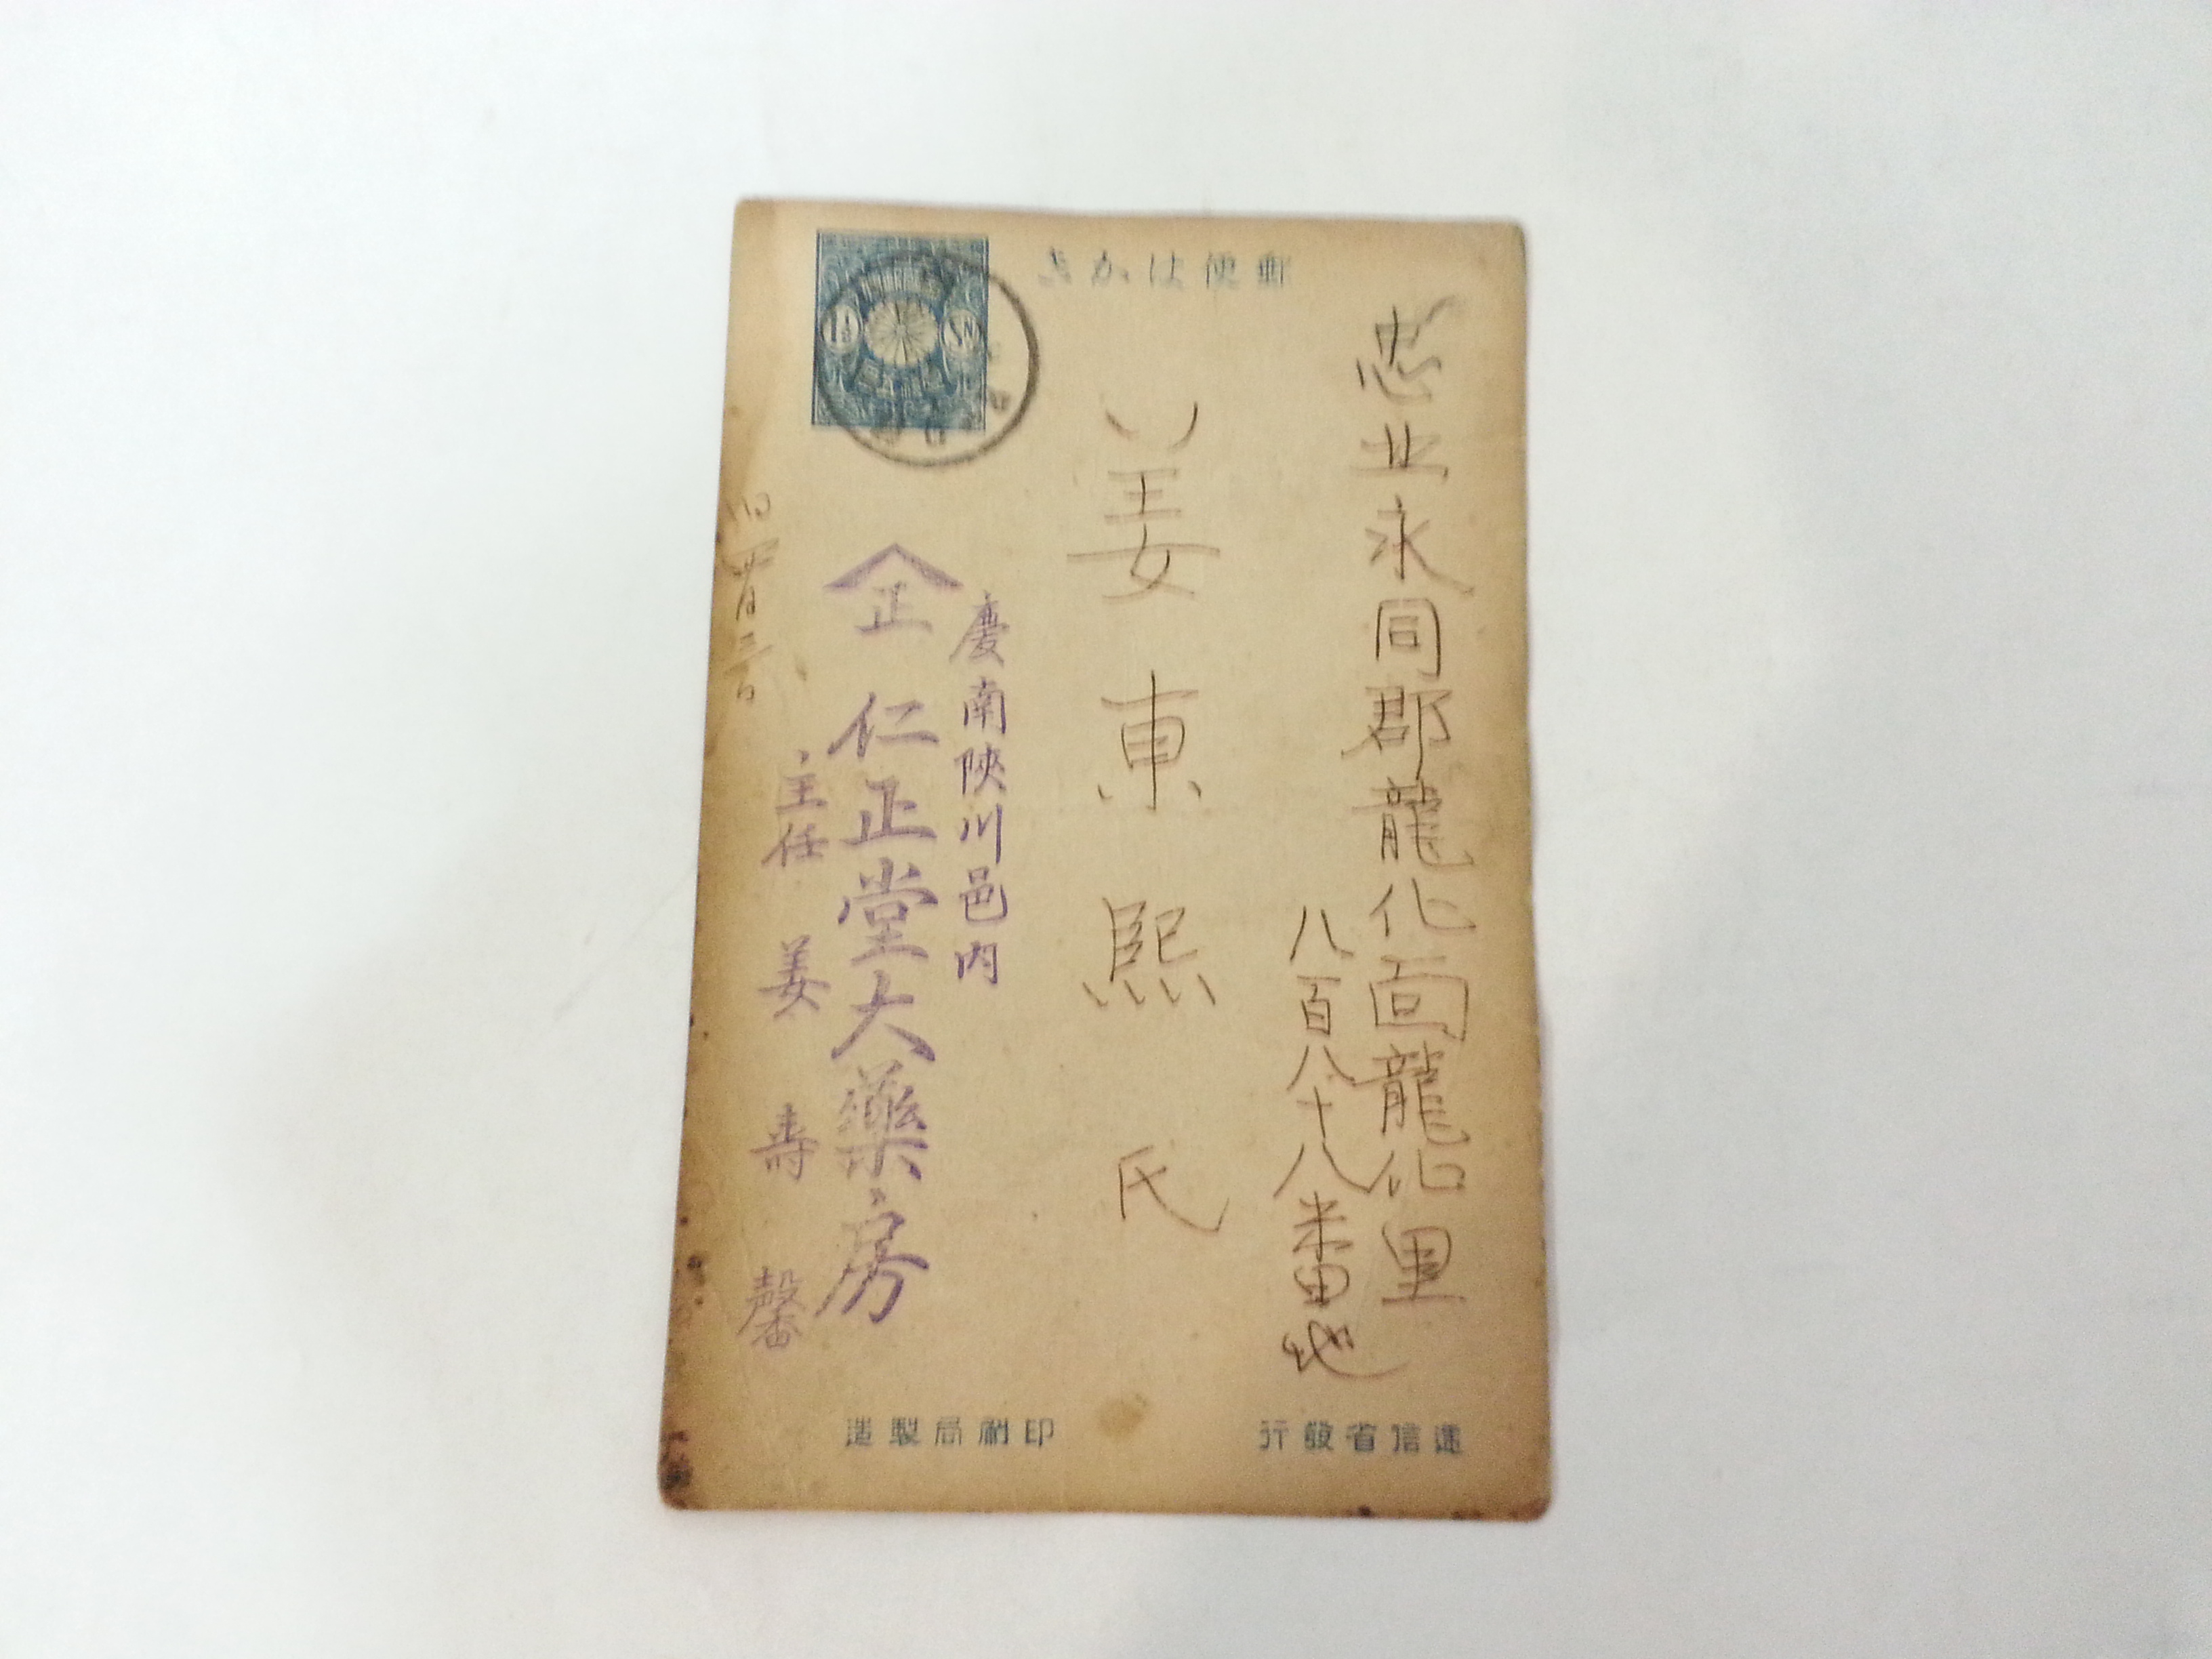 郵便はかき
忠北永同郡龍化面龍化里
八百八十八番地
姜東熙氏
慶南陜川邑内
正 仁正堂大藥房
主任 姜寿馨
逓信省發行
印刷局製造